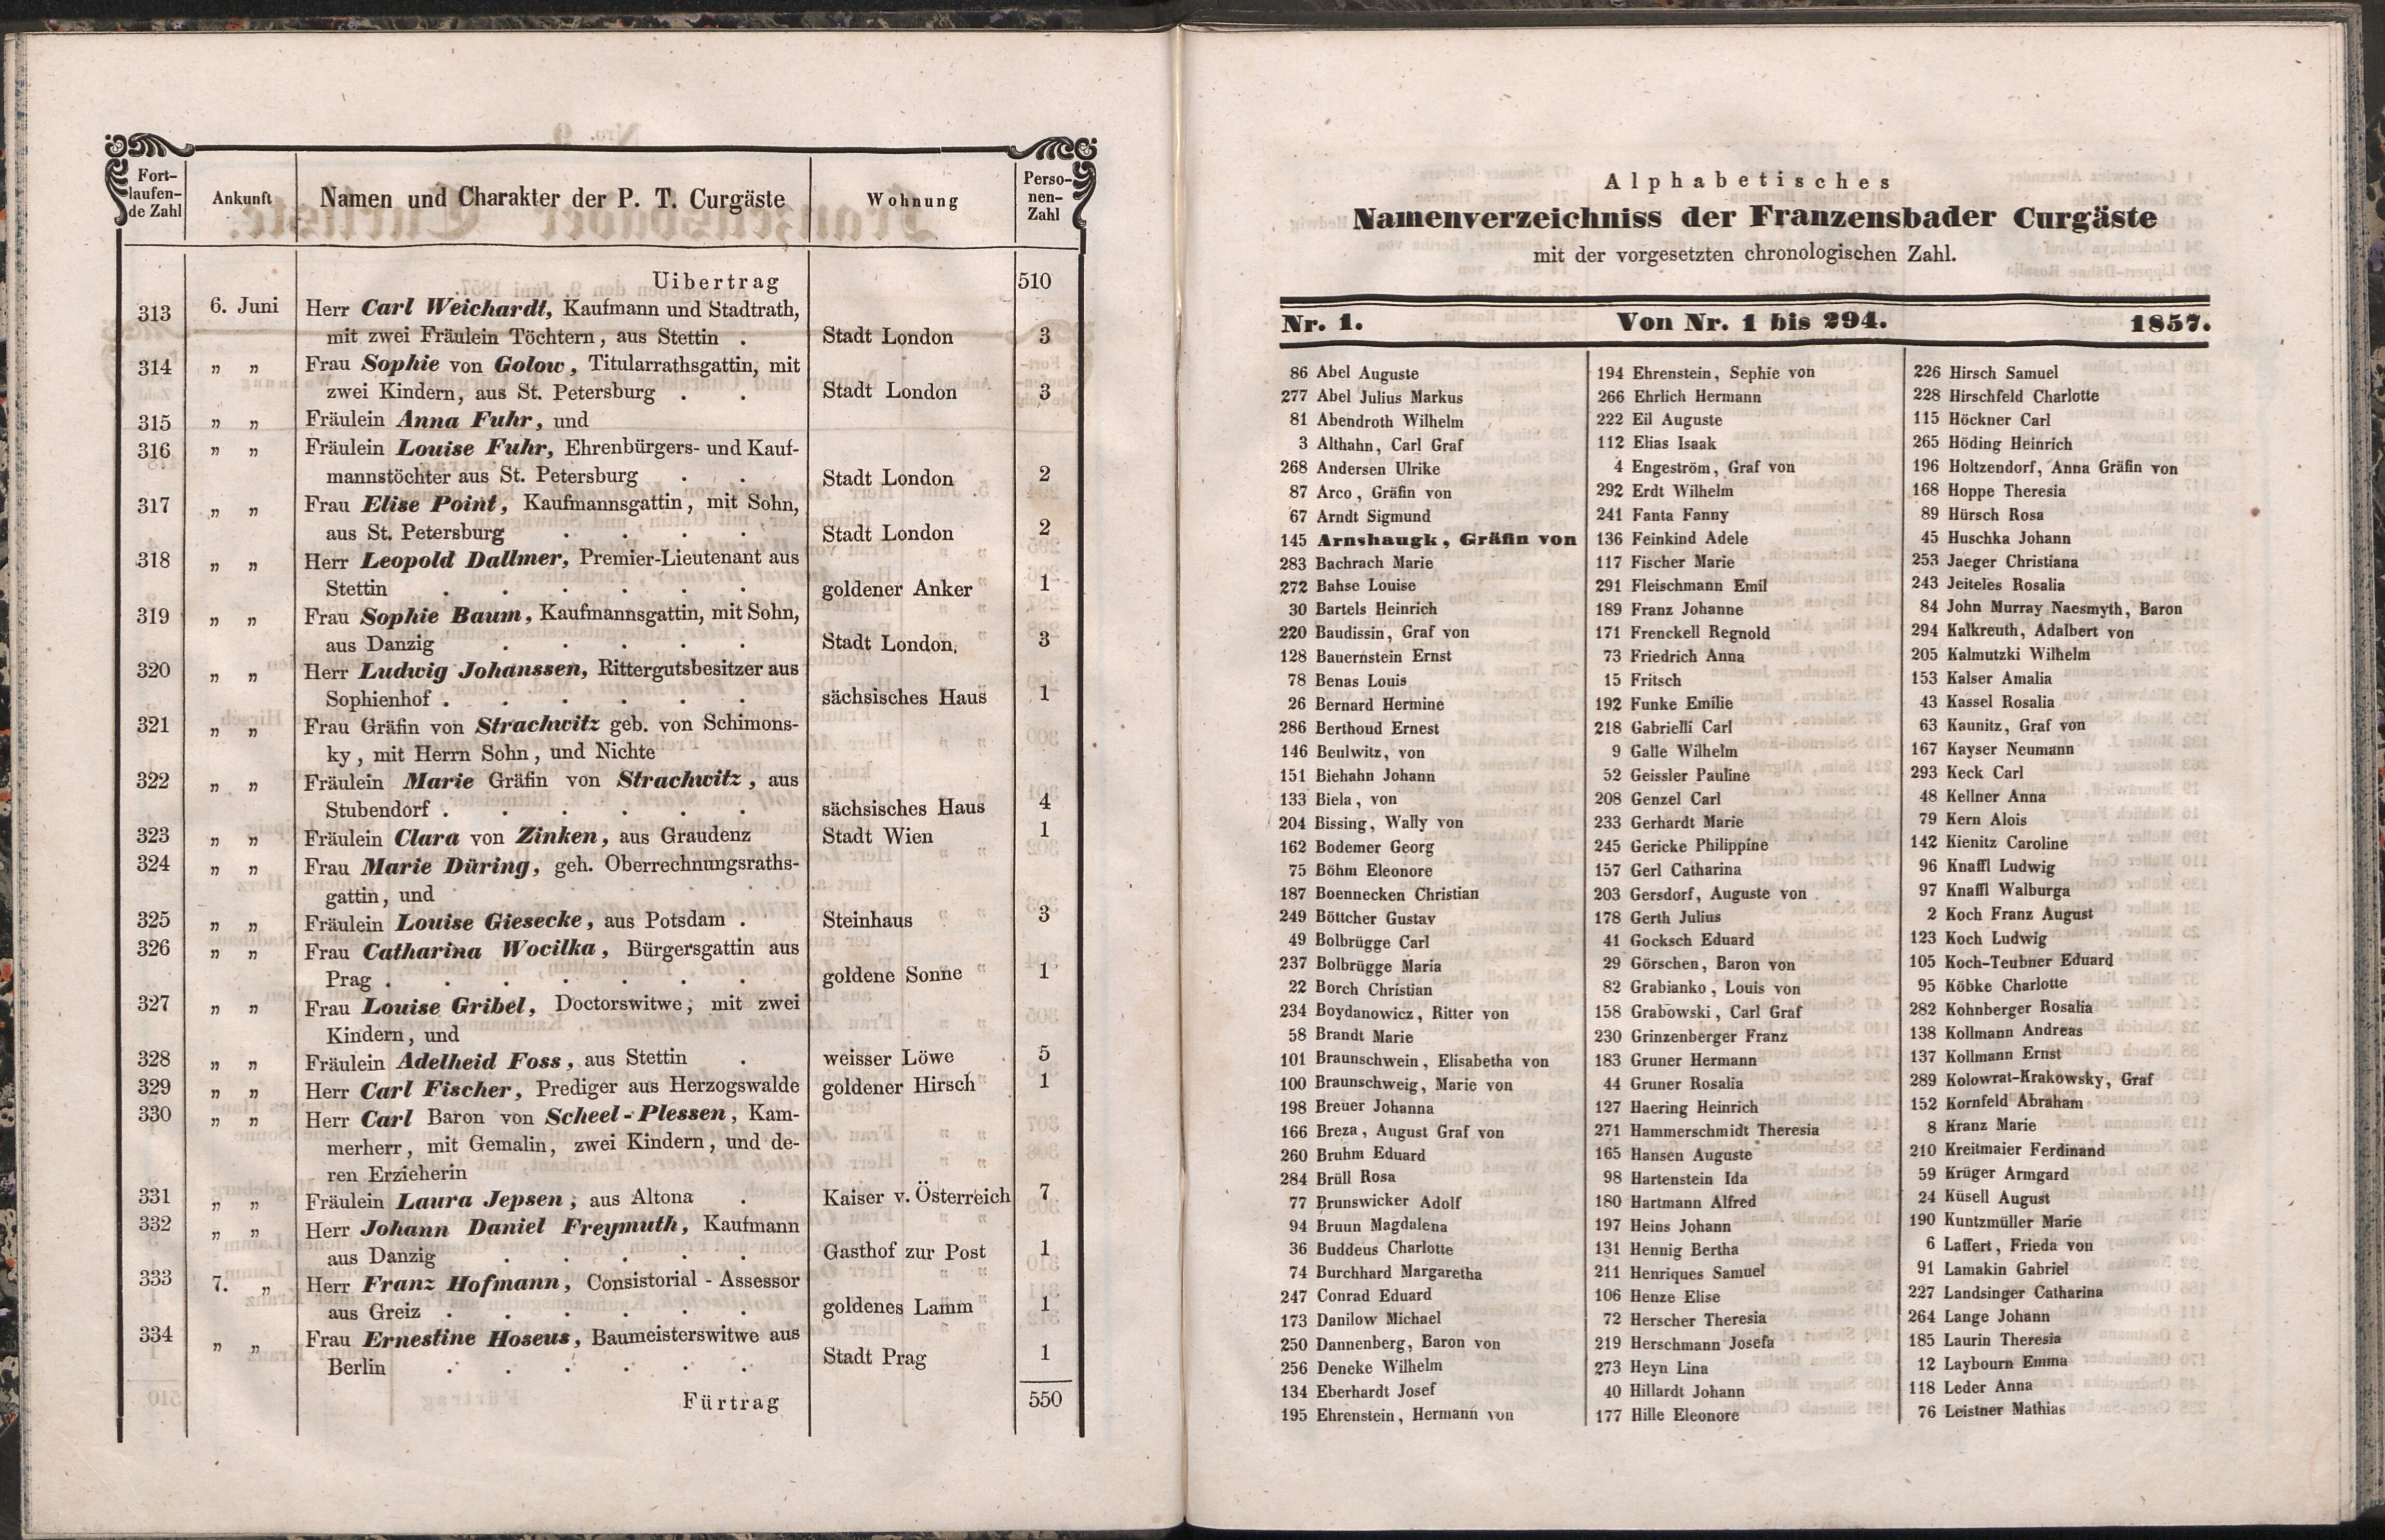 Fort-
laufen-
de Zahl
Ankunft
Namen und Charakter der P. T. Curgäste
Wohnung
Perso-
nen-
Zahl
Uibertrag 510
313 6. Juni Herr Carl Weichardt, Kaufmann und Stadtrath,
mit zwei Fräulein Töchtern, aus Stettin . Stadt London 3
314 „ „ Frau Sophie von Golow, Titularrathsgattin, mit
zwei Kindern, aus St. Petersburg . . Stadt London 3
315 „ „ Fräulein Anna Fuhr, und
316 „ „ Fräulein Louise Fuhr, Ehrenbürgers- und Kauf-
mannstöchter aus St. Petersburg . . Stadt London 2
317 „ „ Frau Elise Point, Kaufmannsgattin, mit Sohn,
aus St. Petersburg . . . . Stadt London 2
318 „ „ Herr Leopold Dallmer, Premier-Lieutenant aus
Stettin . . . . . . goldener Anker 1
319 „ „ Frau Sophie Baum, Kaufmannsgattin, mit Sohn,
aus Danzig . . . . . Stadt London, 3
320 „ „ Herr Ludwig Johanssen, Rittergutsbesitzer aus
Sophienhof . . . . . . sächsisches Haus 1
321 „ „ Frau Gräfin von Strachwitz geb. von Schimons-
ky, mit Herrn Sohn, und Nichte
322 „ „ Fräulein Marie Gräfin von Strachwitz, aus
Stubendorf . . . . . . sächsisches Haus 4
323 „ „ Fräulein Clara von Zinken, aus Graudenz Stadt Wien 1
324 „ „ Frau Marie Düring, geh. Oberrechnungsraths-
gattin, und
325 „ „ Fräulein Louise Giesecke, aus Potsdam . Steinhaus 3
326 „ „ Frau Catharina Wocilka, Bürgersgattin aus
Prag . . . . . . . goldene Sonne 1
327 „ „ Frau Louise Gribel, Doctorswitwe, mit zwei
Kindern, und
328 „ „ Fräulein Adelheid Foss, aus Stettin . weisser Löwe 5
329 „ „ Herr Carl Fischer, Prediger aus Herzogswalde goldener Hirsch 1
330 „ „ Herr Carl Baron von Scheel-Plessen, Kam-
merherr, mit Gemalin, zwei Kindern, und de-
ren Erzieherin
331 „ „ Fräulein Laura Jepsen, aus Altona . Kaiser v. Österreich 7
332 „ „ Herr Johann Daniel Freymuth, Kaufmann
aus Danzig . . . . . Gasthof zur Post 1
333 7. „ Herr Franz Hofmann, Consistorial - Assessor
aus Greiz . . . . . . goldenes Lamm 1
334 „ „ Frau Ernestine Hoseus, Baumeisterswitwe aus
Berlin . . . . . . Stadt Prag 1
Fürtrag 550
Alphabetisches
Namenverzeichniss der Franzensbader Curgäste
mit der vorgesetzten chronologischen Zahl.
Nr. 1. Von Nr. 1 bis 294. 1857.
86 Abel Auguste
277 Abel Julius Markus
81 Abendroth Wilhelm
3 Althahn, Carl Graf
268 Andersen Ulrike
87 Arco, Gräfin von
67 Arndt Sigmund
145 Arnshaugk, Gräfin von
283 Bachrach Marie
272 Bahse Louise
30 Bartels Heinrich
220 Baudissin, Graf von
128 Bauernstein Ernst
78 Benas Louis
26 Bernard Hermine
286 Berthoud Ernest
146 Beulwitz, von
151 Biehahn Johann
133 Biela, von
204 Bissing, Wally von
162 Bodemer Georg
75 Böhm Eleonore
187 Boennecken Christian
249 Böttcher Gustav
49 Bolbrügge Carl
237 Bolbrügge Maria
22 Borch Christian
234 Boydanowicz, Ritter von
58 Brandt Marie
101 Braunschwein, Elisabetha von
100 Braunschweig, Marie von
198 Breuer Johanna
166 Breza, August Graf von
260 Bruhm Eduard
284 Brüll Rosa
77 Brunswicker Adolf
94 Bruun Magdalena
36 Buddeus Charlotte
74 Burchhard Margaretha
247 Conrad Eduard
173 Danilow Michael
250 Dannenberg, Baron von
256 Deneke Wilhelm
134 Eberhardt Josef
195 Ehrenstein, Hermann von
194 Ehrenstein, Sephie von
266 Ehrlich Hermann
222 Eil Auguste
112 Elias Isaak
4 Engeström, Graf von
292 Erdt Wilhelm
241 Fanta Fanny
136 Feinkind Adele
117 Fischer Marie
291 Fleischmann Emil
189 Franz Johanne
171 Frenckell Regnold
73 Friedrich Anna
15 Fritsch
192 Funke Emilie
218 Gabrielli Carl
9 Galle Wilhelm
52 Geissler Pauline
208 Genzel Carl
233 Gerhardt Marie
245 Gericke Philippine
157 Gerl Catharina
203 Gersdorf, Auguste von
178 Gerth Julius
41 Gocksch Eduard
29 Görschen, Baron von
82 Grabianko, Louis von
158 Grabowski, Carl Graf
230 Grinzenberger Franz
183 Gruner Hermann
44 Gruner Rosalia
127 Haering Heinrich
271 Hammerschmidt Theresia
165 Hansen Auguste
98 Hartenstein Ida
180 Hartmann Alfred
197 Heins Johann
131 Hennig Bertha
211 Henriques Samuel
106 Henze Elise
72 Herscher Theresia
219 Herschmann Josefa
273 Heyn Lina
40 Hillardt Johann
177 Hille Eleonore
226 Hirsch Samuel
228 Hirschfeld Charlotte
115 Höckner Carl
265 Höding Heinrich
196 Holtzendorf, Anna Gräfin von
168 Hoppe Theresia
89 Hürsch Rosa
45 Huschka Johann
253 Jaeger Christiana
243 Jeiteles Rosalia
84 John Murray Naesmyth, Baron
294 Kalkreuth, Adalbert von
205 Kalmutzki Wilhelm
153 Kalser Amalia
43 Kassel Rosalia
63 Kaunitz, Graf von
167 Kayser Neumann
293 Keck Carl
48 Kellner Anna
79 Kern Alois
142 Kienitz Caroline
96 Knaffl Ludwig
97 Knaffl Walburga
2 Koch Franz August
123 Koch Ludwig
105 Koch-Teubner Eduard
95 Köbke Charlotte
282 Kohnberger Rosalia
138 Kollmann Andreas
137 Kollmann Ernst
289 Kolowrat-Krakowsky, Graf
152 Kornfeld Abraham
8 Kranz Marie
210 Kreitmaier Ferdinand
59 Krüger Armgard
24 Küsell August
190 Kuntzmüller Marie
6 Laffert, Frieda von
91 Lamakin Gabriel
227 Landsinger Catharina
264 Lange Johann
185 Laurin Theresia
12 Laybourn Emma
118 Leder Anna
76 Leistner Mathias